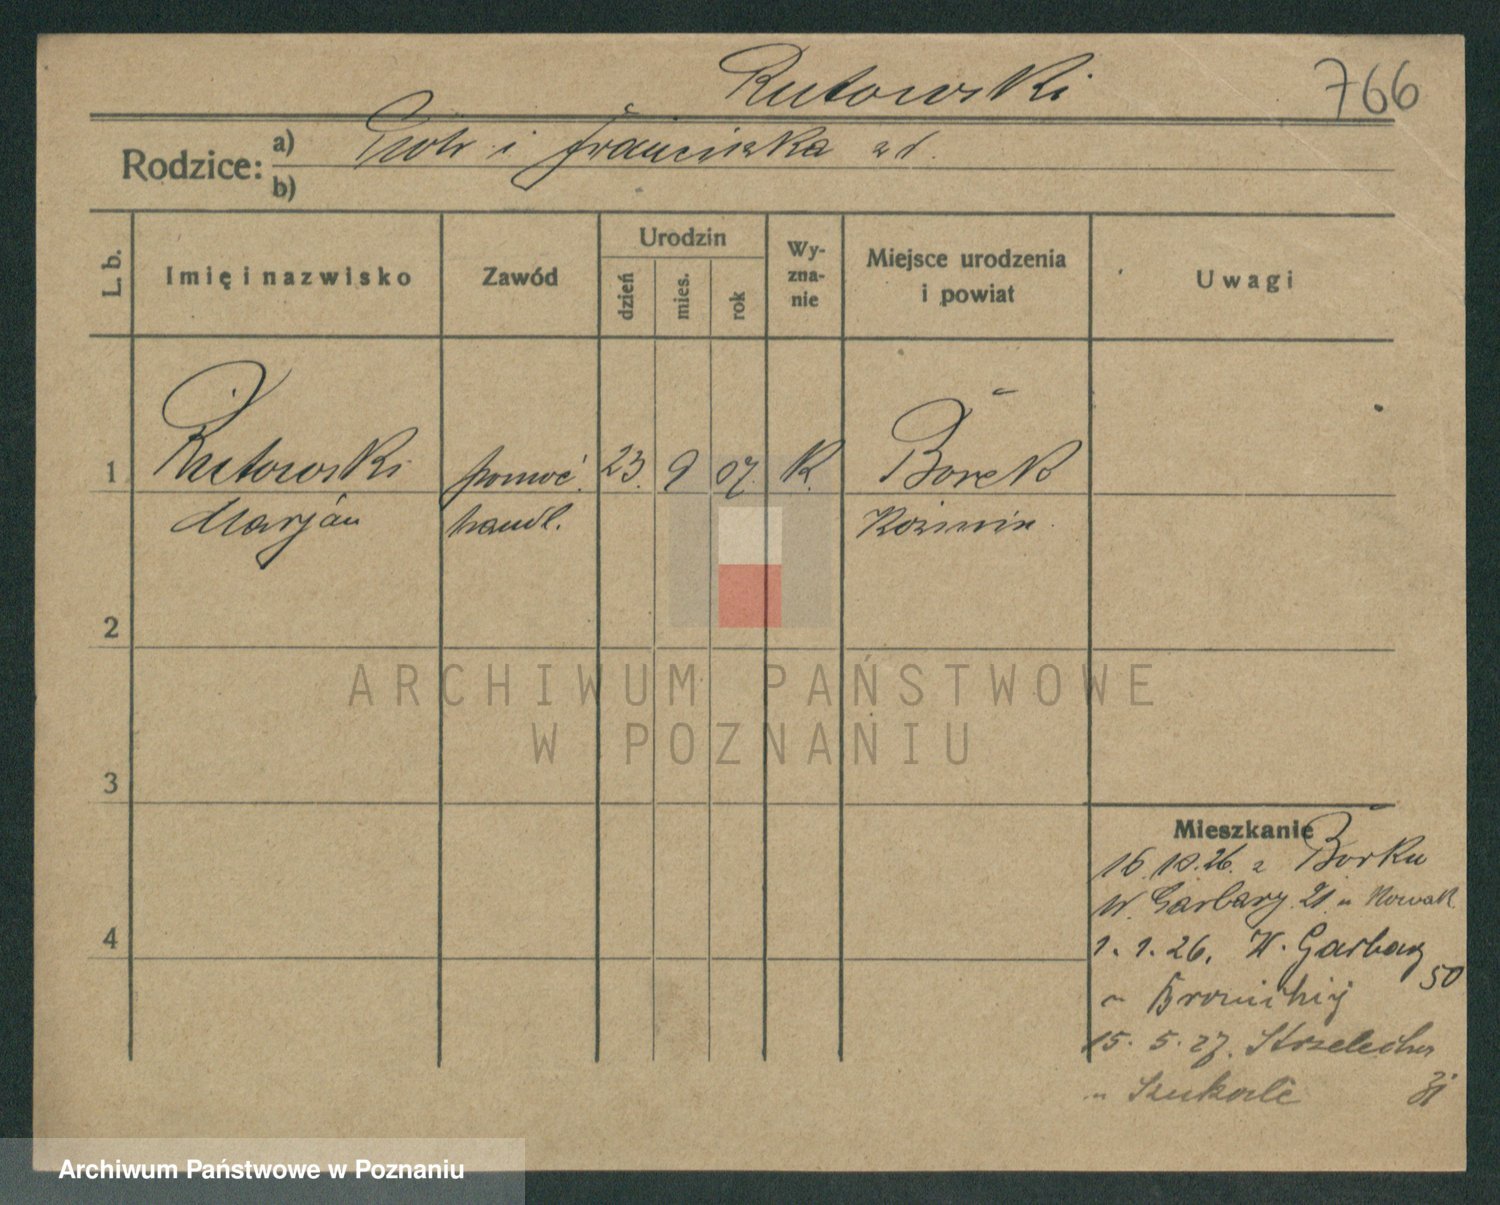 Rutowski
766
Rodzice:
a) Piotr i Franciszka z d.
b)
L. b.
Imię i nazwisko
Zawód
Urodzin
dzień
mies.
rok
Wy-
zna-
nie
Miejsce urodzenia
i powiat
Uwagi
1 Rutowski pomoc. 23. 9 07. K. Borek
Marjan handl. Koźmin.
2
3
4
ARCHIWUM PAŃSTWOWE
W POZNANIU
Mieszkanie
16. 10. 26. z Borku
W. Garbary 21. u Nowak
1. 1. 26. W. Garbary
50
u
15. 5. 27. Strzelecka
31
u
Archiwum Państwowe w Poznaniu